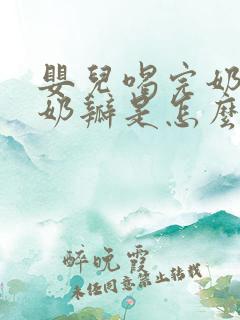 嬰兒喝完奶
奶瓣是怎麼
醉晚霞
未經同意禁止轉載